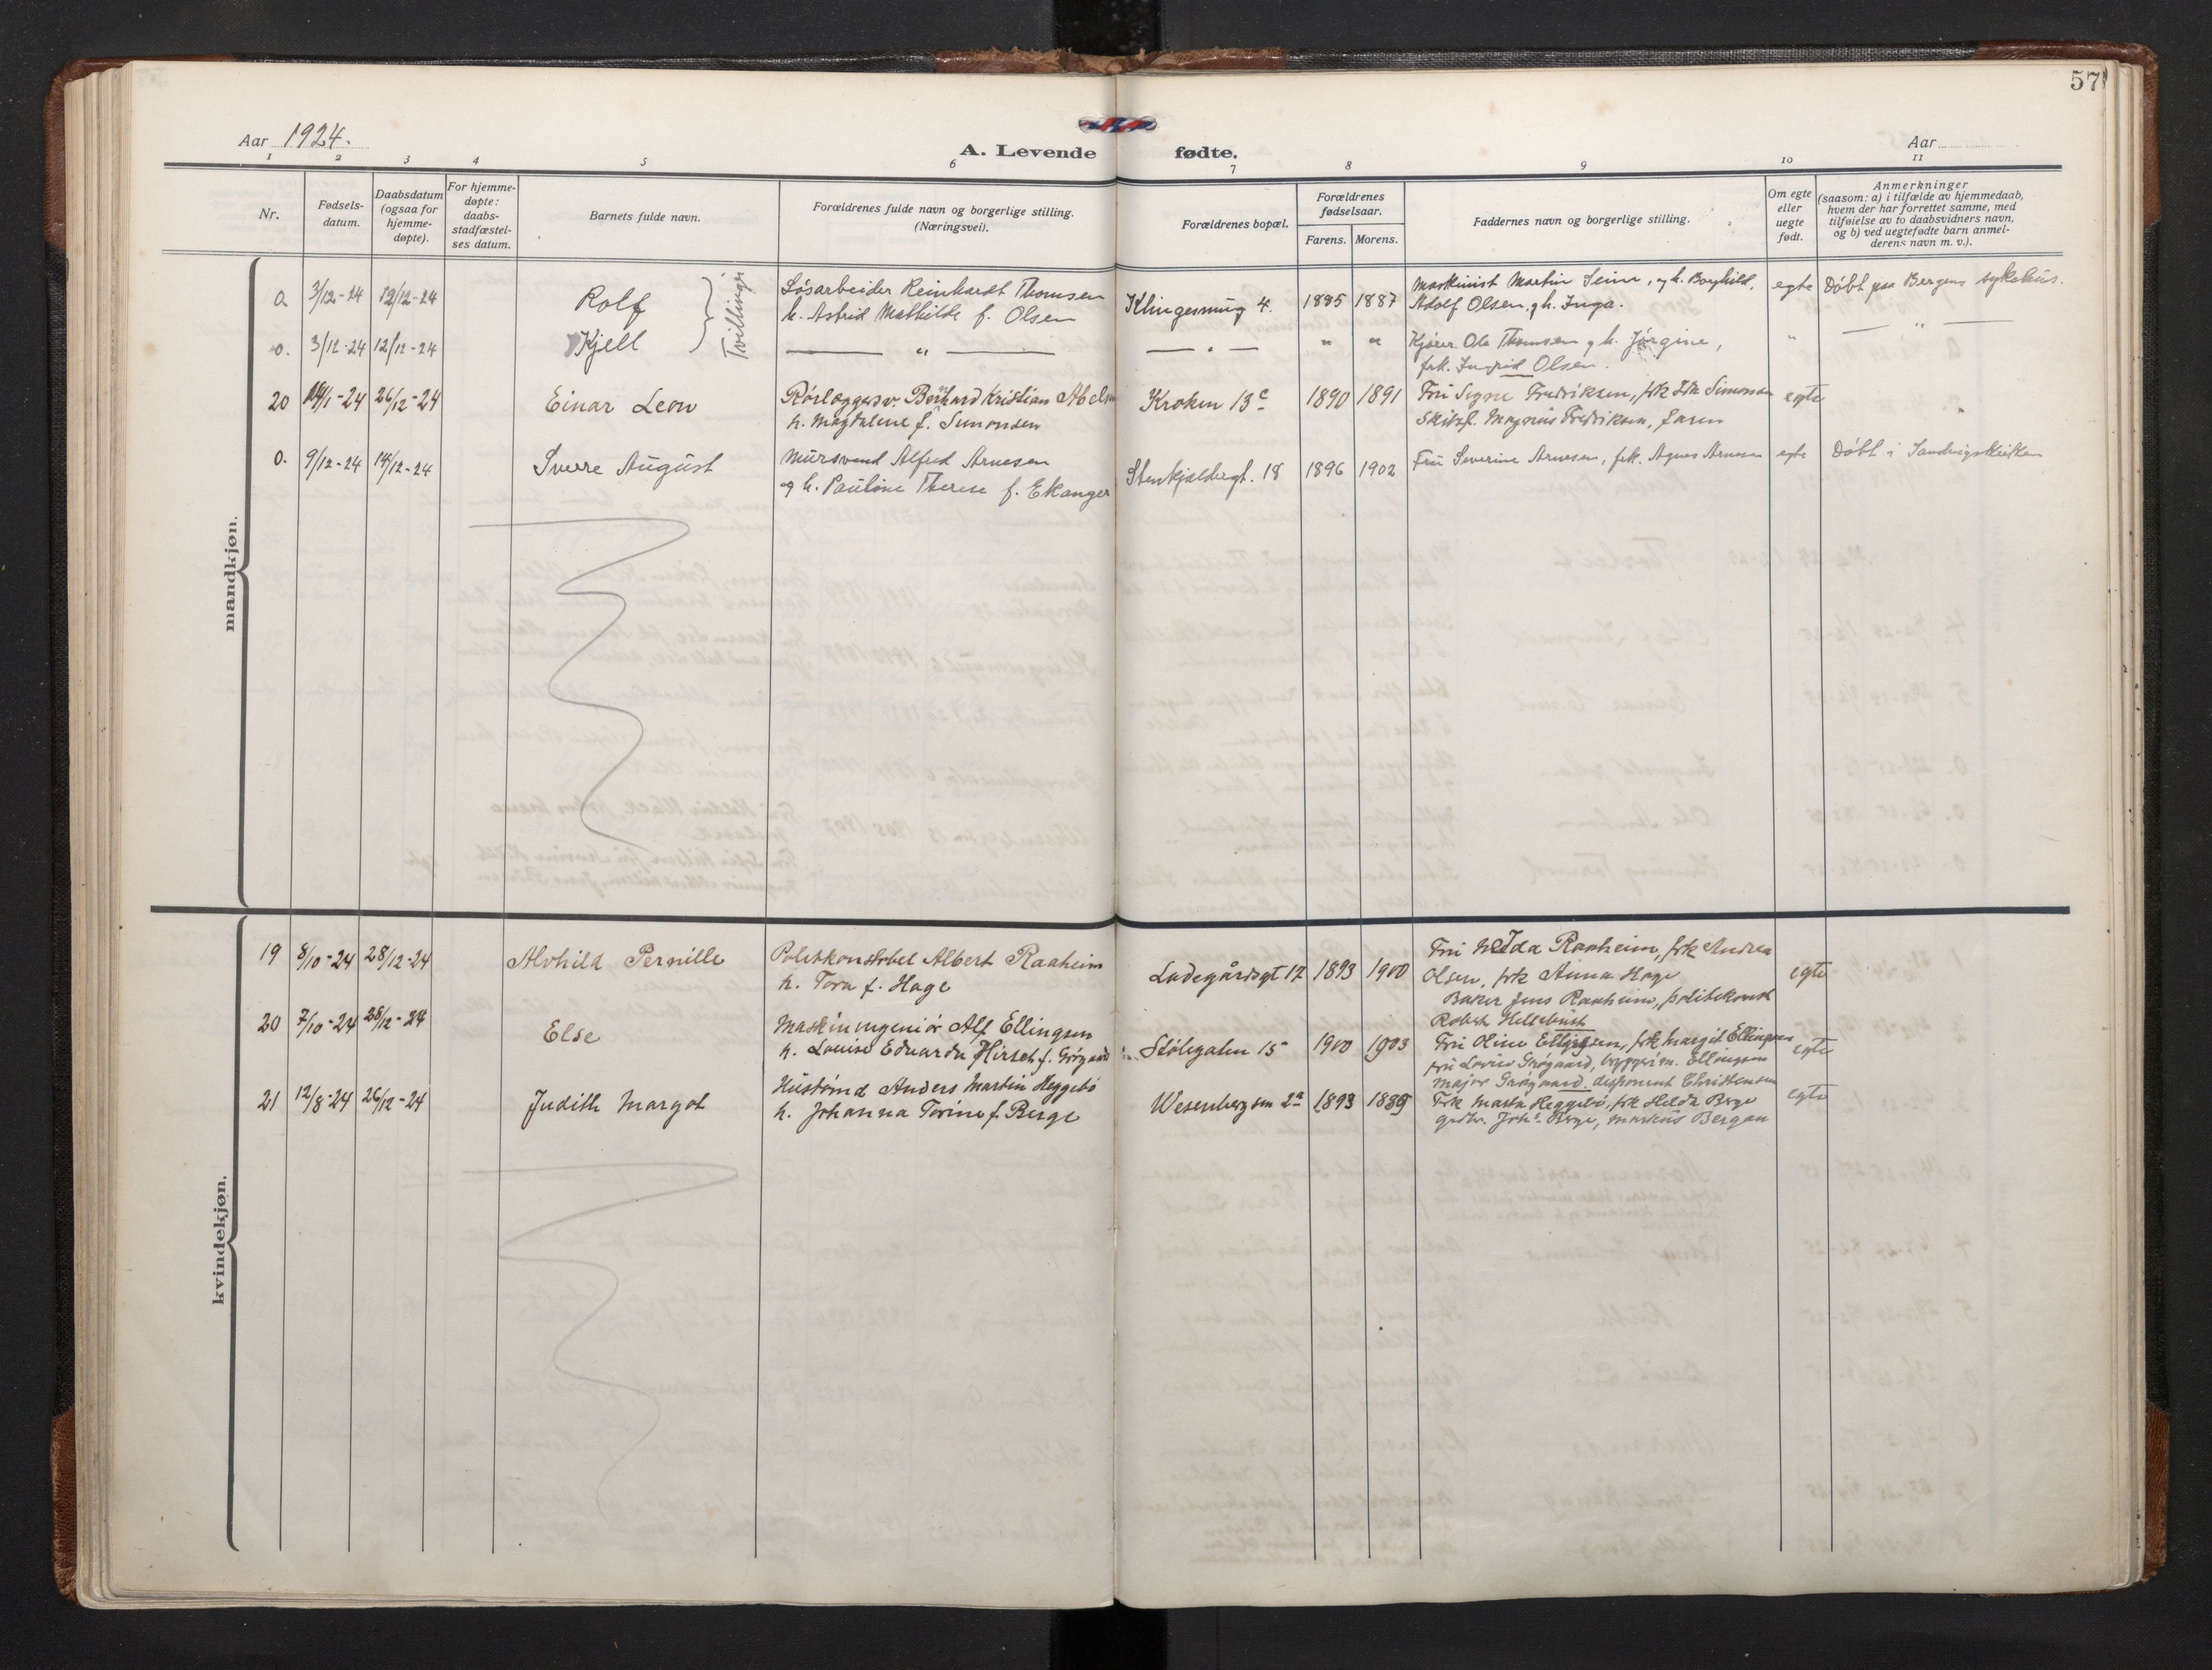 57
Aar 1924.
A. Levende fødte.
Aar
1 2 3 4 5 6 7 8 9 10 11
Nr.
Fødsels-
datum.
Daabsdatum
(ogsaa for
hjemme-
døpte).
For hjemme-
døpte:
daabs-
stadfæstel-
ses datum.
Barnets fulde navn.
Forældrenes fulde navn og borgerlige stilling.
(Næringsvei).
Forældrenes bopæl.
Forældrenes
fødselsaar.
Farens. Morens.
Faddernes navn og borgerlige stilling.
Om egte
eller
uegte
født.
Anmerkninger
(saasom: a) i tilfælde av hjemmedaab,
hvem der har forrettet samme, med
tilføielse av to daabsvidners navn,
og b) ved uegtefødte barn anmel-
derens navn m. v.).
mandkjøn.
0. 3/12-24 12/12-24 Rolf Tvillinger
Løsarbeider Reinhardt Thomsen
h. Astrid Mathilde f. Olsen
Klingesmug 4. 1885 1887
Maskinist Martin Seim, g h. Borghild,
Adolf Olsen g h. Inga.
egte Døbt paa Bergens sykehus.
0. 3/12-24 12/12-24 Kjell
— " —
— " — " "
Kjører Ole Thomsen g h. Jørgine,
frk. Ingrid Olsen.
" — " —
20 26/12-24 Einar Leon
Rørlæggersv. Bernhard Kristian Abelsen
h. Magdalene f. Simonsen
Kroken 13c 1890 1891
Fru Signe Fredriksen, frk Simonsen
Magnus Fredriksen, faren
egte
0. 9/12-24 14/12-24 Sverre August
Mursvend Alfred Arnesen
og h. Pauline Therese f. Ekanger
Stenkjeldergt. 18 1896 1902
Fru Severine Arnesen, frk. Agnes Arnesen
egte Døbt i Sandvigskirken
kvindekjøn.
19 8/10-24 28/12-24 Alvhild Pernille
Politikonstabel Albert Raaheim
h. Tora f. Hage
Ladegårdsgt 12 1893 1900
Fru Raaheim, frk Andrea
Olsen, frk Anna Hage
Baker Jens Raaheim, politikonst
Robert Hellebust
egte
20 7/10-24 28/12-24 Else
Maskiningeniør Alf Ellingsen
h. Louise Edvarda Hirsch f. Grøgaard
Stølegaten 15 1900 1903
Fru Oline Ellingsen, frk Margit Ellingsen
fru Lovise Grøgaard, Ellingsen
Major Grøgaard, disponent Christensen
egte
21 12/8-24 26/12-24 Judith Margot
Anders Martin Heggebø
h. Johanna Torine f. Berge
Wesenbergsm 2a 1893 1889
Frk Marta Heggebø, frk Helda Berge
Berge, Markus Bergan
egte